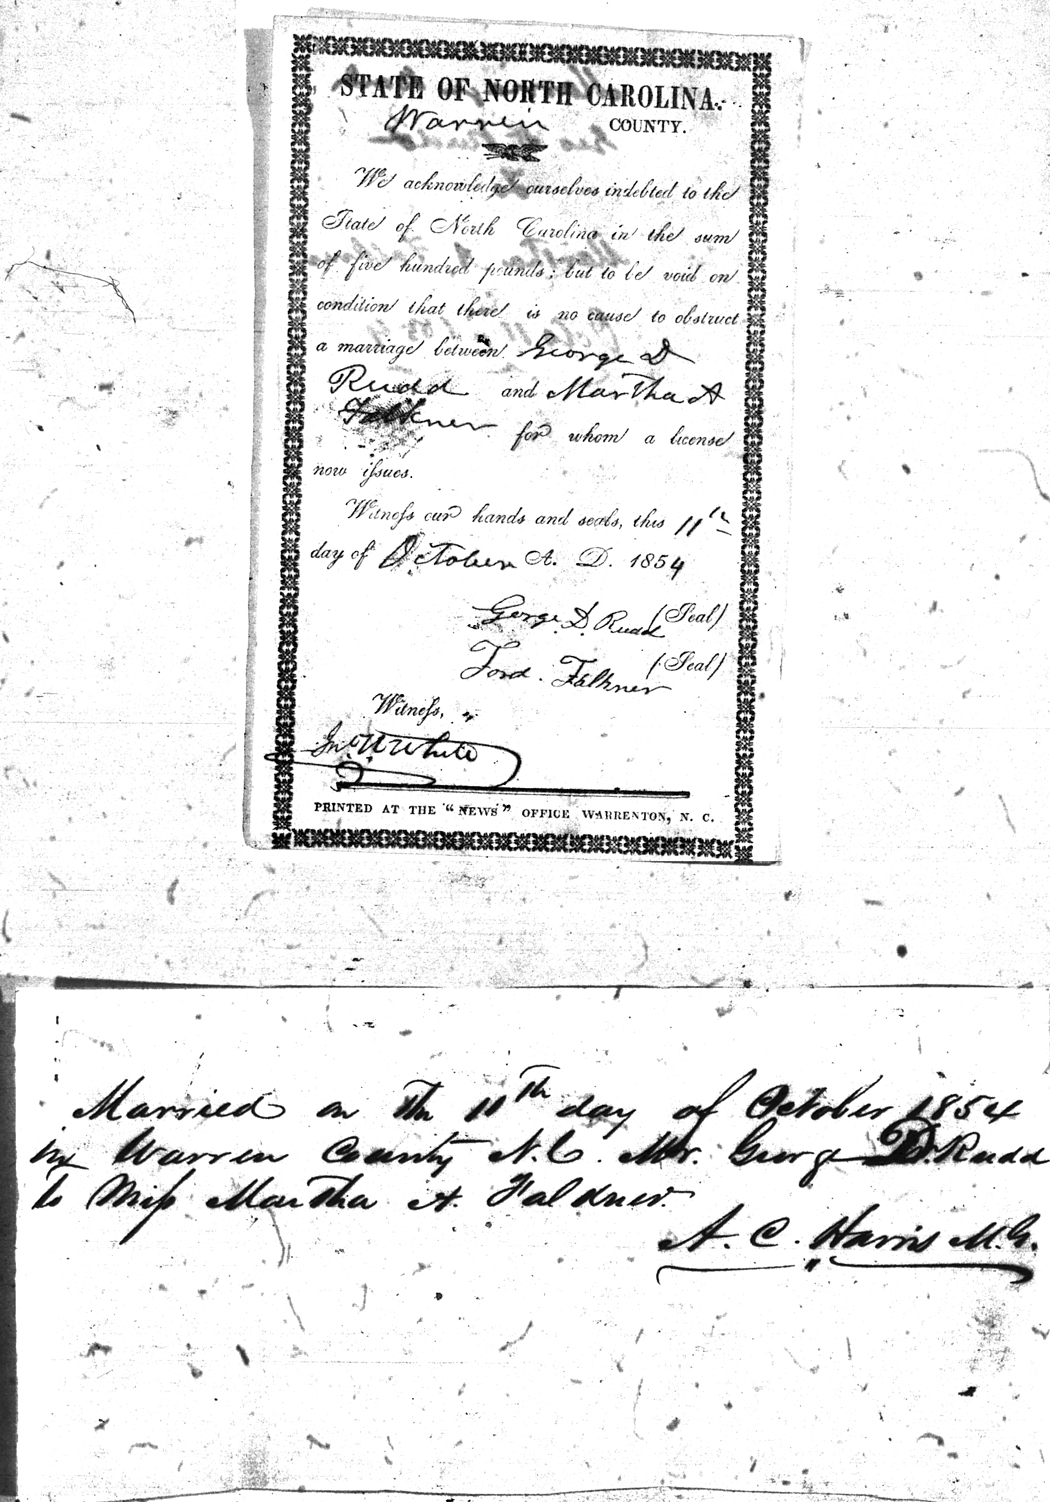 STATE OF NORTH CAROLINA.
Warren COUNTY.
We acknowledge ourselves indebted to the
State of North Carolina in the sum
of five hundred pounds; but to be void on
condition that there is no cause to obstruct
a marriage between George D
Rudd and Martha A
Falkner for whom a license
now issues.
Witness our hands and seals, this 11th
day of October A. D. 1854
George D. Rudd (Seal)
Ford. Falkner (Seal)
Witness,
Jno W White
PRINTED AT THE "NEWS" OFFICE WARRENTON, N. C.
Married on th 11th day of October 1854
in Warren County N.C. Mr. George D. Rudd
to Miss Martha A. Falkner.
A. C. Harris M.G.